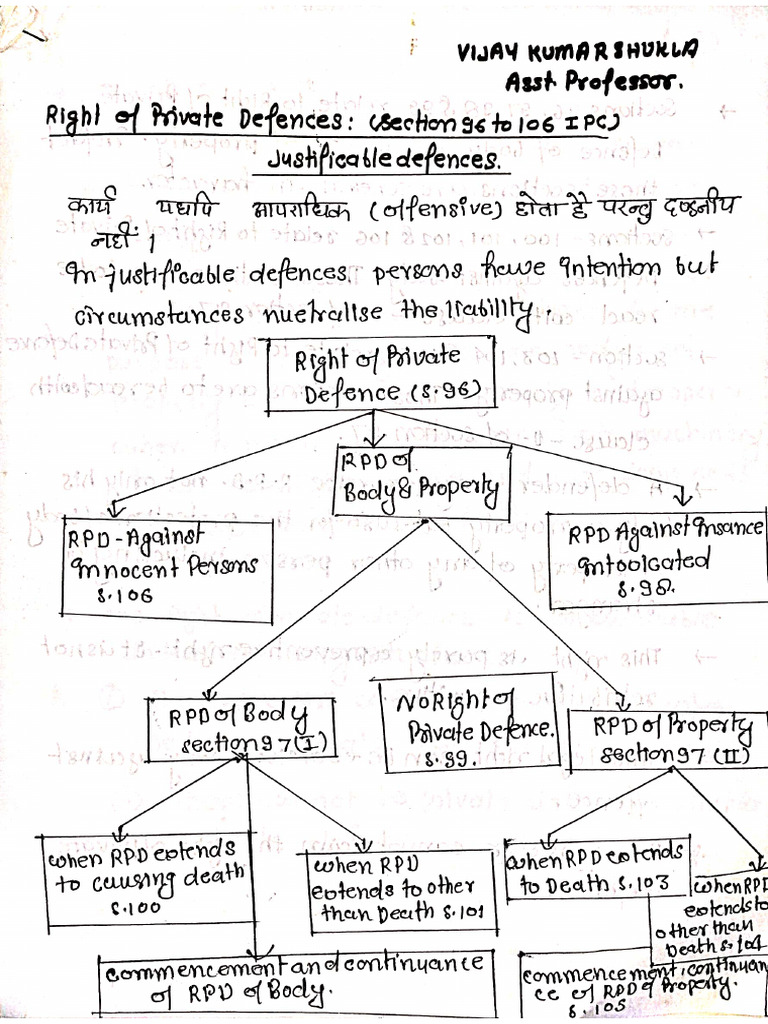 VIJAY KUMAR SHUKLA
Asst. Professor.
Right of Private Defences: (section 96 to 106 IPC)
Justificable defences.
कार्य यद्यपि आपराधिक (offensive) होता है परन्तु दण्डनीय
नहीं।
In justificable defences, persons have intention but
circumstances nuetralise the liability.
Right of Private
Defence (S.96)
RPD of
Body & Property
RPD - Against
Innocent Persons
S.106
RPD Against Insance
Intoolgated
S.98.
RPD of Body
section 97 (I)
No Right of
Private Defence.
S.99.
RPD of Property
section 97 (II)
when RPD extends
to causing death
S.100
when RPD
extends to other
than Death S.101
when RPD extends
to Death S.103
when RPD
extends to
other than
Death S.104
commencement and continuance
of RPD of Body.
commencement, continuan
ce of RPD of Property.
S.105